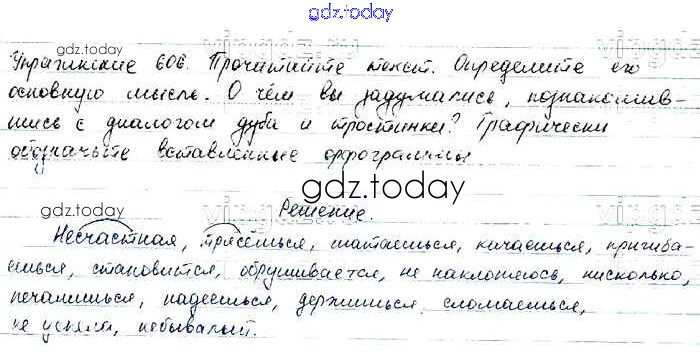 gdz.today
Упражнение 606. Прочитайте текст. Определите его
основную мысль. О чём вы задумались, познакомив-
шись с диалогом дуба и тростинки? Графически
обозначьте вставленные орфограммы
gdz.today
Решение.
Несчастная, трясёшься, шатаешься, качаешься, пригиба-
ешься, становится, обрушивается, не наклоняюсь, нисколько,
печалишься, надеешься, держишься, сломаешься,
не успел, небывалый.
gdz.today
gdz.today
gdz.today
gdz.today
gdz.today